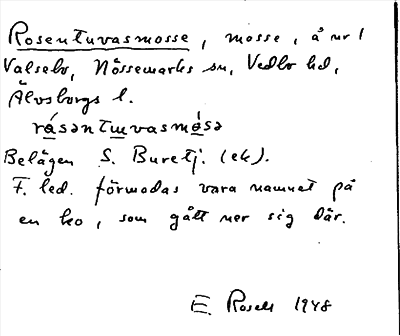 Rosentuvasmosse, mosse, å nr 1
Valsebo, Nössemarks sn, Vedbo hd,
Älvsborgs l.
rósəntɯvasmósə
Belägen S. Buretj. (ek).
F. led. förmodas vara namnet på
en ko, som gått ner sig där.
E. Rosell 1948